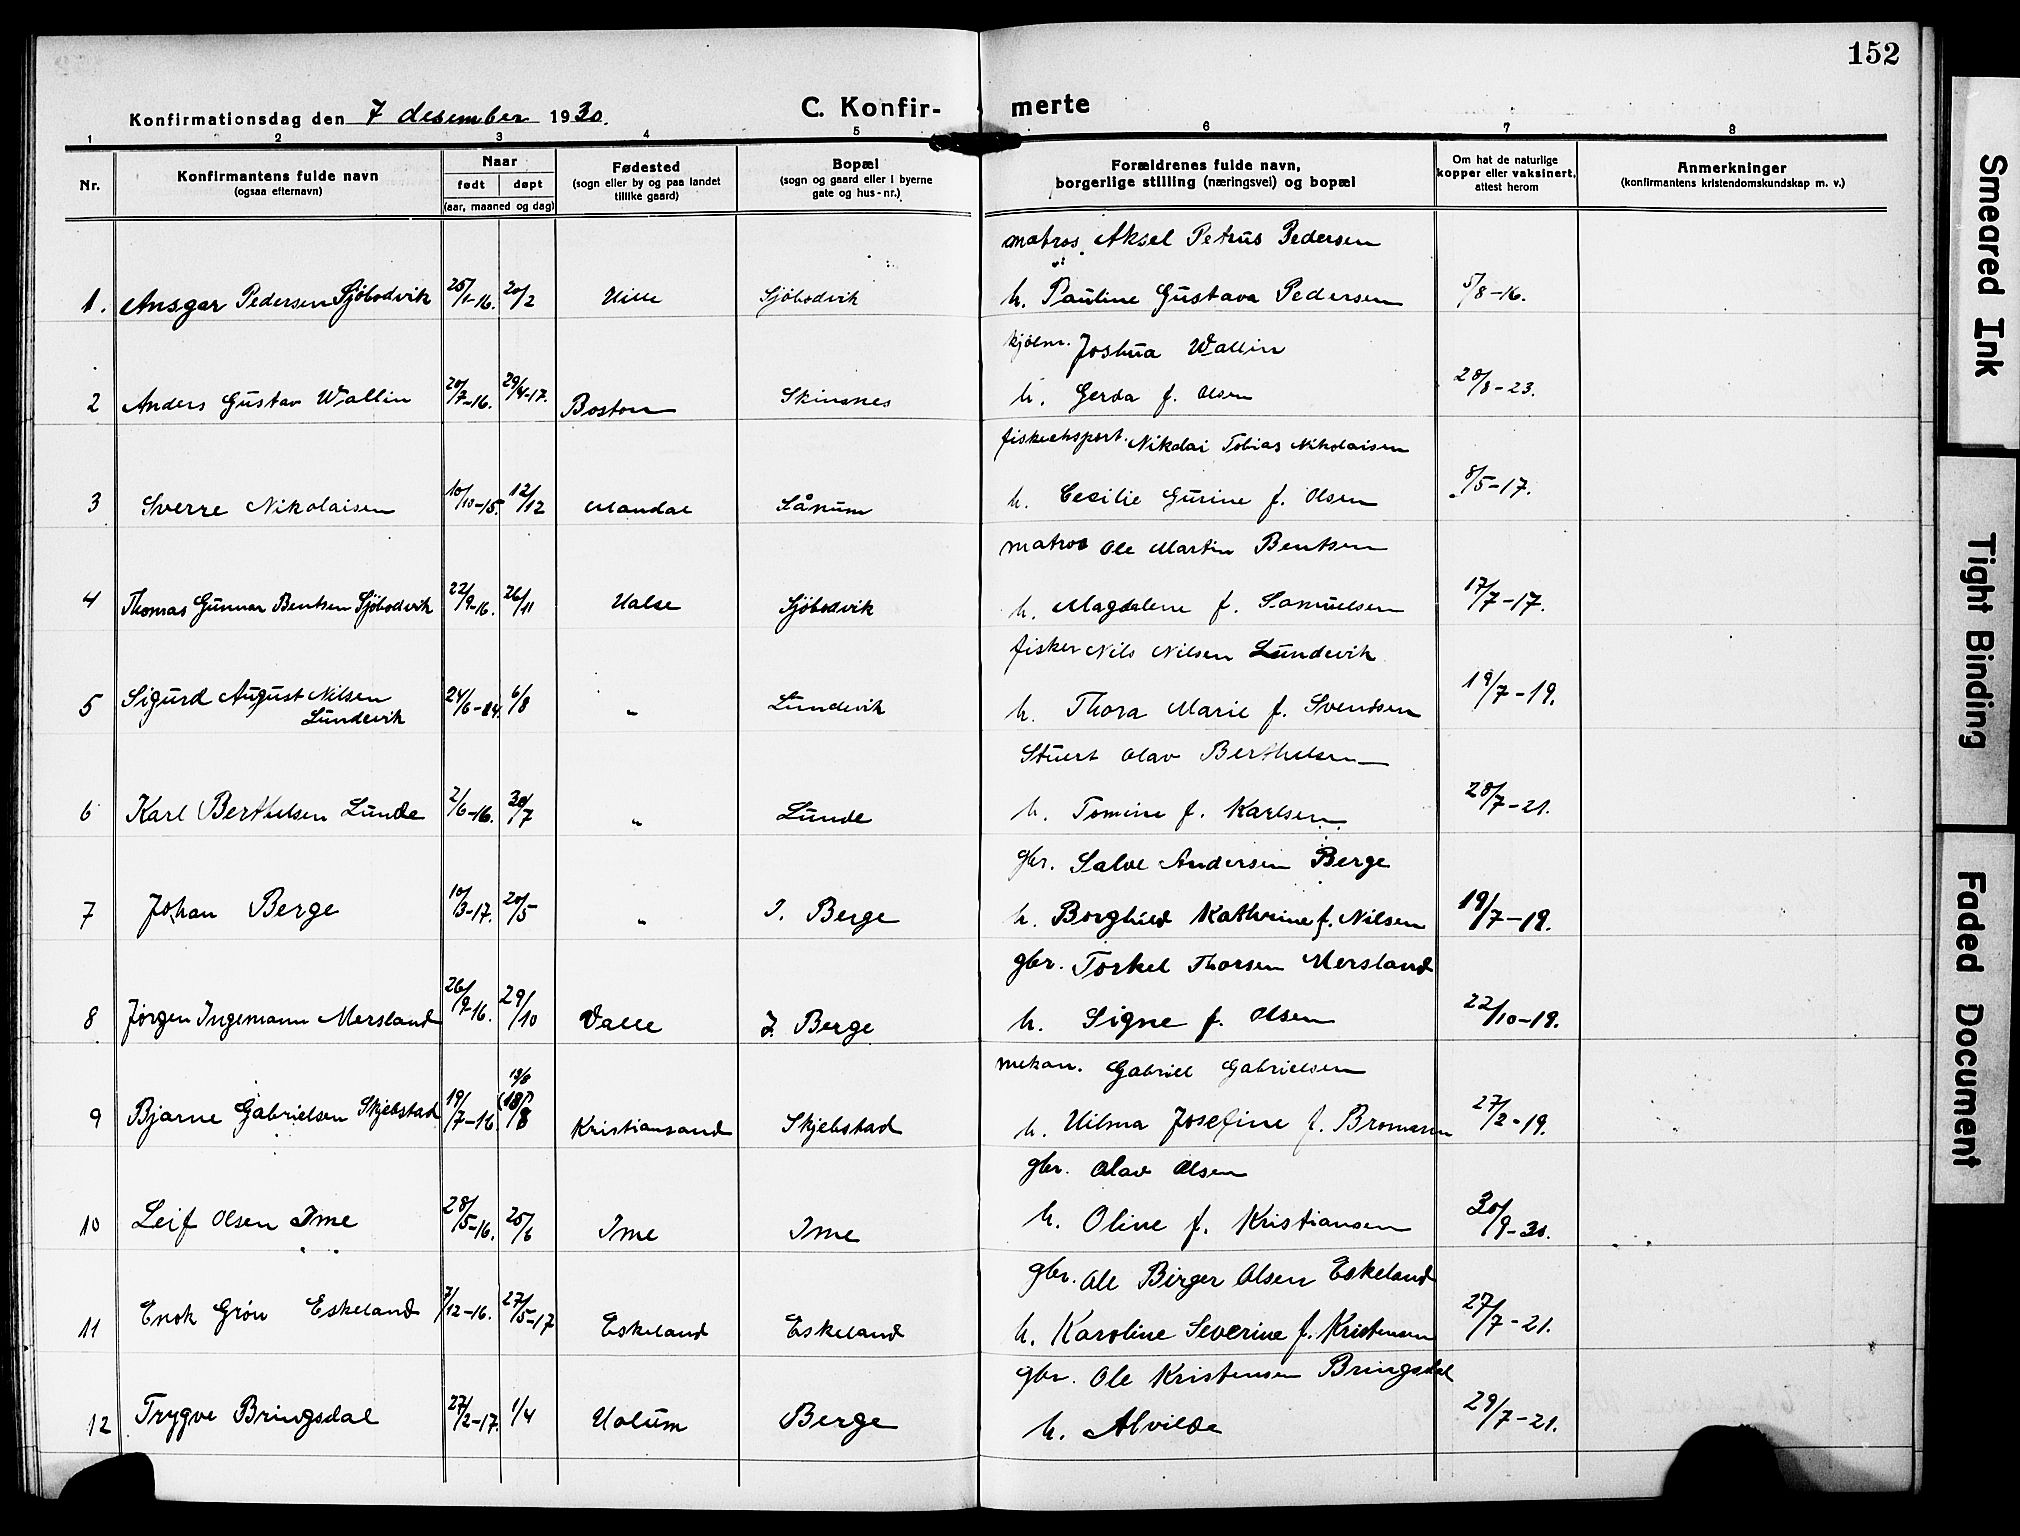 152
Konfirmationsdag den 7 desember 1930.
C. Konfir- merte
1 2 3 4 5 6 7 8
Nr.
Konfirmantens fulde navn
(ogsaa efternavn)
Naar
født døpt
(aar, maaned og dag)
Fødested
(sogn eller by og paa landet
tillike gaard)
Bopæl
(sogn og gaard eller i byerne
gate og hus-nr.)
Forældrenes fulde navn,
borgerlige stilling (næringsvei) og bopæl
Om hat de naturlige
kopper eller vaksinert,
attest herom
Anmerkninger
(konfirmantens kristendomskundskap m. v.)
matros Aksel Petrus Pedersen
1. Ansgar Pedersen Sjöbodvik 25/1-16. 20/2 Hille Sjöbodvik h. Pauline Gustava Pedersen 5/8-16.
kjölm. Joshua Wallin
2 Anders Gustav Wallin 20/7-16. 29/4-17. Boston Skinsnes h. Gerda f. Olsen 20/8-23.
fiskeeksport. Nikolai Tobias Nikolaisen
3 Sverre Nikolaisen 10/10-15. 12/12 Mandal Sånum h. Cecilie Gurine f. Olsen 8/5-17.
matros Ole Martin Bentsen
4 Thomas Gunnar Bentsen Sjöbodvik 22/9-16. 26/11 Halse Sjöbodvik h. Magdalene f. Samuelsen 17/7-17.
fisker Nils Nilsen Lundevik
5 Sigurd August Nilsen
Lundevik 24/6-14. 6/8 " Lundevik h. Thora Marie f. Svendsen 19/7-19.
Stuert Olav Berthelsen
6 Karl Berthelsen Lunde 2/6-16. 30/7 " Lunde h. Tomine f. Karlsen 28/7-21.
gbr. Salve Andersen Berge
7 Johan Berge 10/3-17. 20/5 " I. Berge h. Borghild Kathrine f. Nilsen 19/7-19.
gbr. Torkel Thorsen Mersland
8 Jörgen Ingemann Mersland 26/9-16. 29/10 Valle I. Berge h. Signe f. Olsen 22/10-19.
mekan. Gabriel Gabrielsen
9 Bjarne Gabrielsen Skjebstad 19/7-16 (18/8 Kristiansand Skjebstad h. Hilma Josefine f. Bromann 27/2-19.
gbr. Olav Olsen
10 Leif Olsen Ime 28/5-16. 25/6 Ime Ime h. Oline f. Kristiansen 30/9-30.
gbr. Ole Birger Olsen Eskeland
11 Enok Grön Eskeland 7/12-16. 27/5-17 Eskeland Eskeland h. Karoline Severine f. Kristensen 27/7-21.
gbr. Ole Kristensen Bringsdal
12 Trygve Bringsdal 27/2-17. 1/4 Holum Berge h. Alvilde 29/7-21.
Smeared Ink
Tight Binding
Faded Document